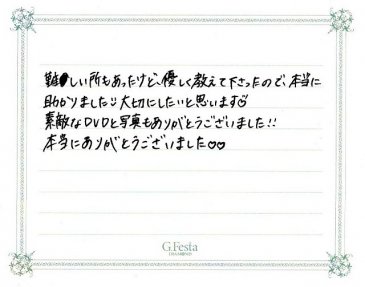 難しい所もあったけど、優しく教えて下さったので、本当に
助かりました!!大切にしたいと思います♡
素敵なDVDと写真もありがとうございました!!
本当にありがとうございました♡♡
G.Festa